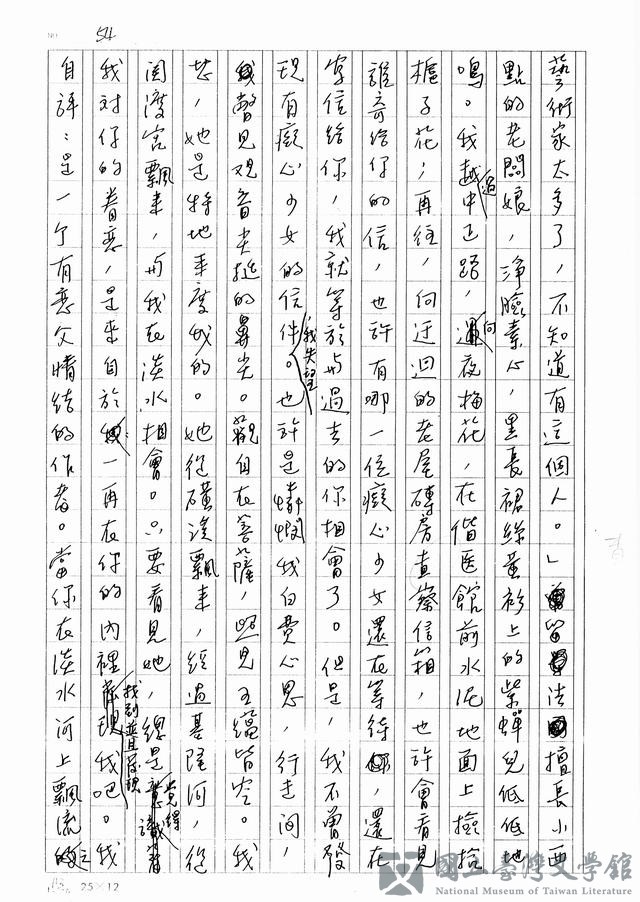 54
藝術家太多了,不知道有這個人。」留法擅長小西
點的老闆娘,淨臉素心,黑長裙絲黃衫上的紫蟬兒低低地
鳴。我越過中正路,向夜梅花,在偕医館前水泥地面上撿拾
梔子花,再往,向迂迴的老屋磚房查察信箱,也許會看見
誰寄給你的信,也許有哪一位癡心少女還在等待,還在
字信給你,我就等於與過去的你相會了。但是,我不曾發
現有癡心少女的信件,我失望。也許是憐憫我白費心思,行走间,
瞥見观音尖挺的鼻尖。觀自在菩薩,照見五蘊皆空。我
,她是特地來度我的。她從磺溪飄來,經過基隆河,從
関渡宮飄來,與我在淡水相會。只要看見她,總是覺得
我对你的眷恋,是來自於:一再在你的内裡找到並且發現我吧。我
自評:是一个有恋父情结的作者。當你在淡水河上飄流之
25×12
國立臺灣文學館
National Museum of Taiwan Literature